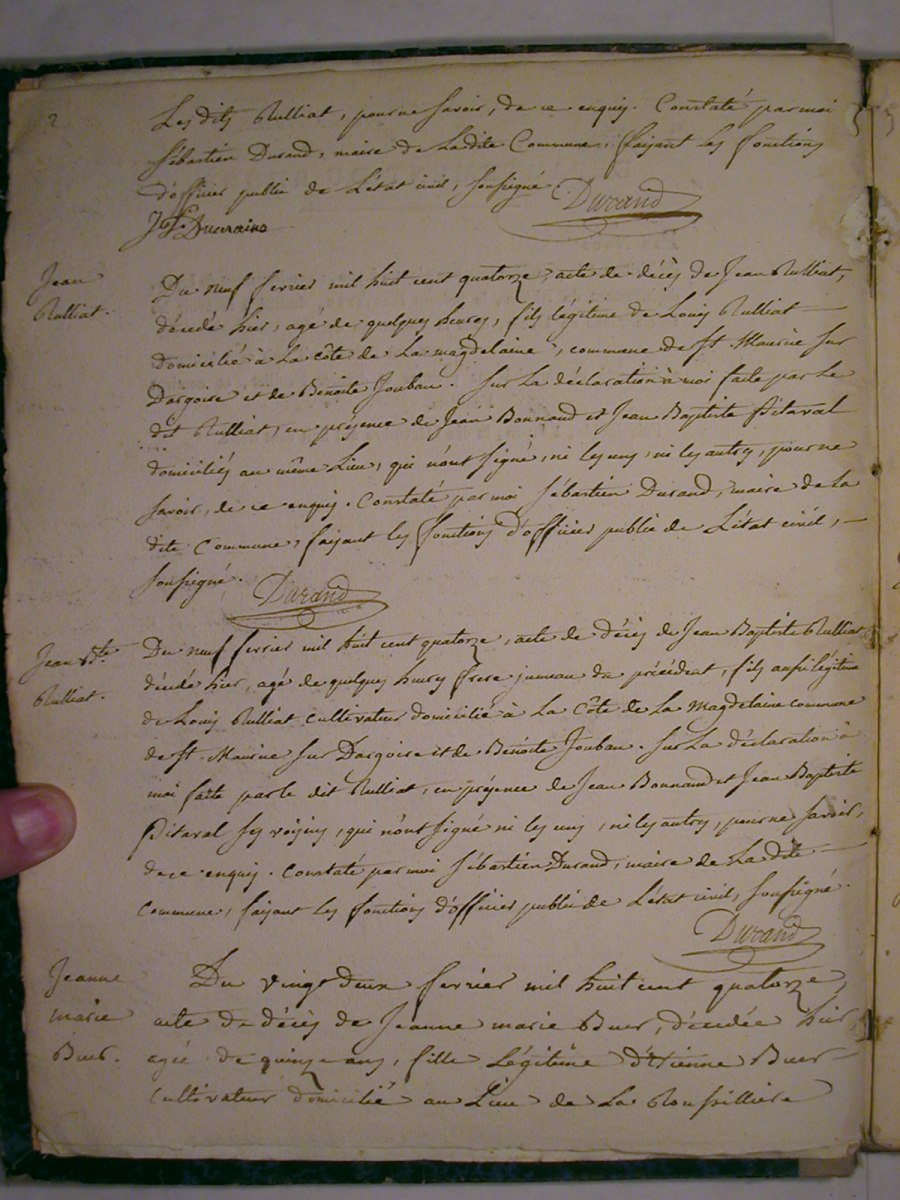 2
Les dits Rulliat, pour ne savoir, de ce enquis. Constaté par moi
Sébastien Durand, maire de La dite Commune, faisant les fonctions
d'officier public de L'état civil, soussigné. Durand
Jean
Rulliat.
Du neuf fevrier mil huit cent quatorze, acte de décès de Jean Rulliat,
décédé hier, agé de quelques heures, fils légitime de Louis Rulliat
domicilié à La côte de La magdelaine, commune de St. Maurice sur
Dargoire et de Benoite Jouban. Sur La déclaration à moi faite par Le
dit Rulliat, en présence de Jean Bonnand et Jean Baptiste Pitaval
domiciliés au même Lieu, qui n'ont signé, ni les uns, ni les autres, pour ne
savoir, de ce enquis. Constaté par moi Sébastien Durand, maire de La
dite Commune, faisant les fonctions d'officier public de L'état civil,
soussigné. Durand
Jean Bte.
Rulliat.
Du neuf fevrier mil huit cent quatorze, acte de décès de Jean Baptiste Rulliat
décédé hier, agé de quelques heures frere jumeau du précédent, fils aussi légitime
de Louis Rulliat cultivateur domicilié à La Côte de La Magdelaine commune
de St. Maurice sur Dargoire et de Benoite Jouban. Sur La déclaration à
moi faite par le dit Rulliat, en présence de Jean Bonnand et Jean Baptiste
Pitaval ses voisins, qui n'ont signé ni les uns, ni les autres, pour ne savoir,
de ce enquis. Constaté par moi Sébastien Durand, maire de La dite
Commune, faisant les fonctions d'officier public de L'état civil, soussigné.
Durand
Jeanne
marie
Buer.
Du vingt deux fevrier mil huit cent quatorze,
acte de décès de Jeanne marie Buer, décédée hier,
agée de quinze ans, fille Légitime d'Etienne Buer
cultivateur domicilié au Lieu de La Roussilliere